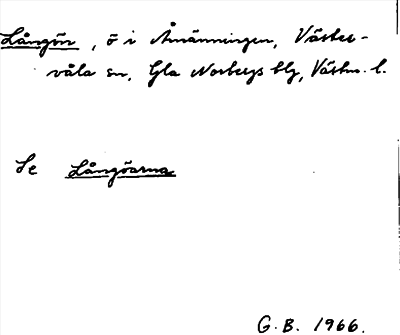 Långön, ö i Åmänningen, Väster-
våla sn, Gla Norbergs blg, Västm. l.
Se Långöarna
G.B. 1966.